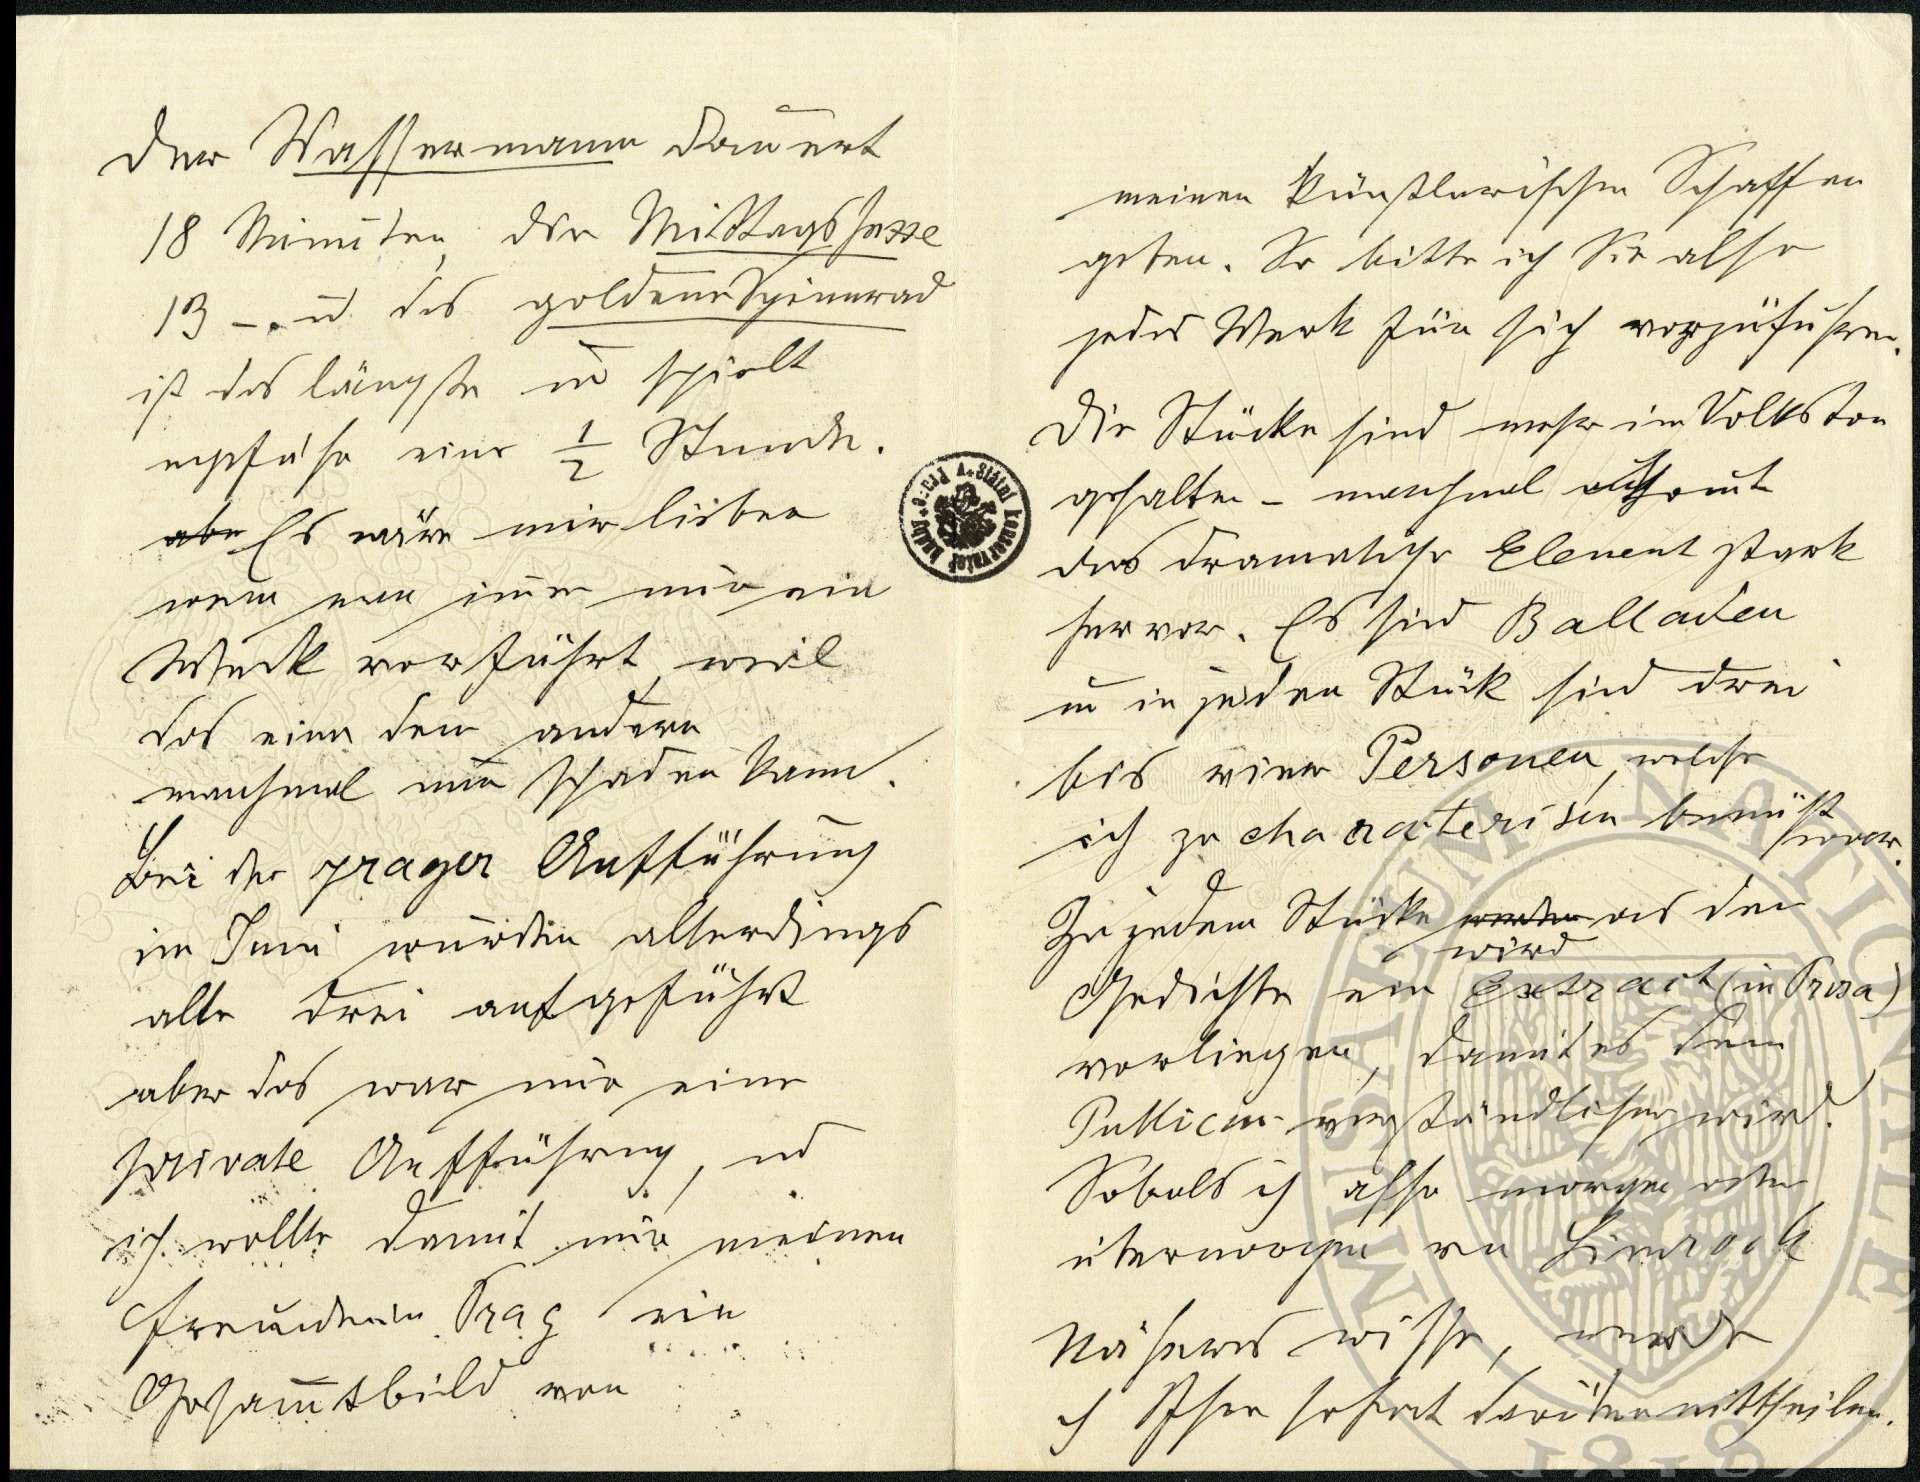 Der Wassermann dauert
18 Minuten, die Mittagshexe
13 –„– u. das goldene Spinnrad
ist das längste u spielt
ungefähr eine ½ Stunde.
aber Es wäre mir lieber
wenn man immer nur ein
Werk vorführt, weil
das eine dem andern
manchmal nur schaden kann.
Bei der prager Aufführung
im Juni wurden allerdings
alle drei aufgeführt
aber das war nur eine
private Aufführung, und
ich wollte damit nur meinen
Freunden in Prag ein
Gesammtbild von
meinen künstlerischen Schaffen
geben. So bitte ich Sie also
jedes Werk für sich vorzuführen.
Die Stücke sind mehr im Volkston
gehalten – manchmal
das dramatische Element stark
hervor. Es sind Balladen
u in jeden Stück sind drei
bis vier Personen, welche
ich zu characterisen bemüht
war.
Zu jedem Stücke werden aus den
wird
Gedichte ein Extract (in Prosa)
vorliegen, damit es dem
Publicum verständlicher wird.
Sobald ich also morgen oder
übermorgen von Simrock
Näheres wisse, werde
ich Ihnen sofort darüber mittheilen.
MUSAEUM NATIONALE
1818